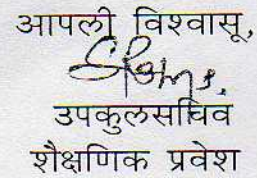 आपली विश्वासू,
उपकुलसचिव
शैक्षणिक प्रवेश